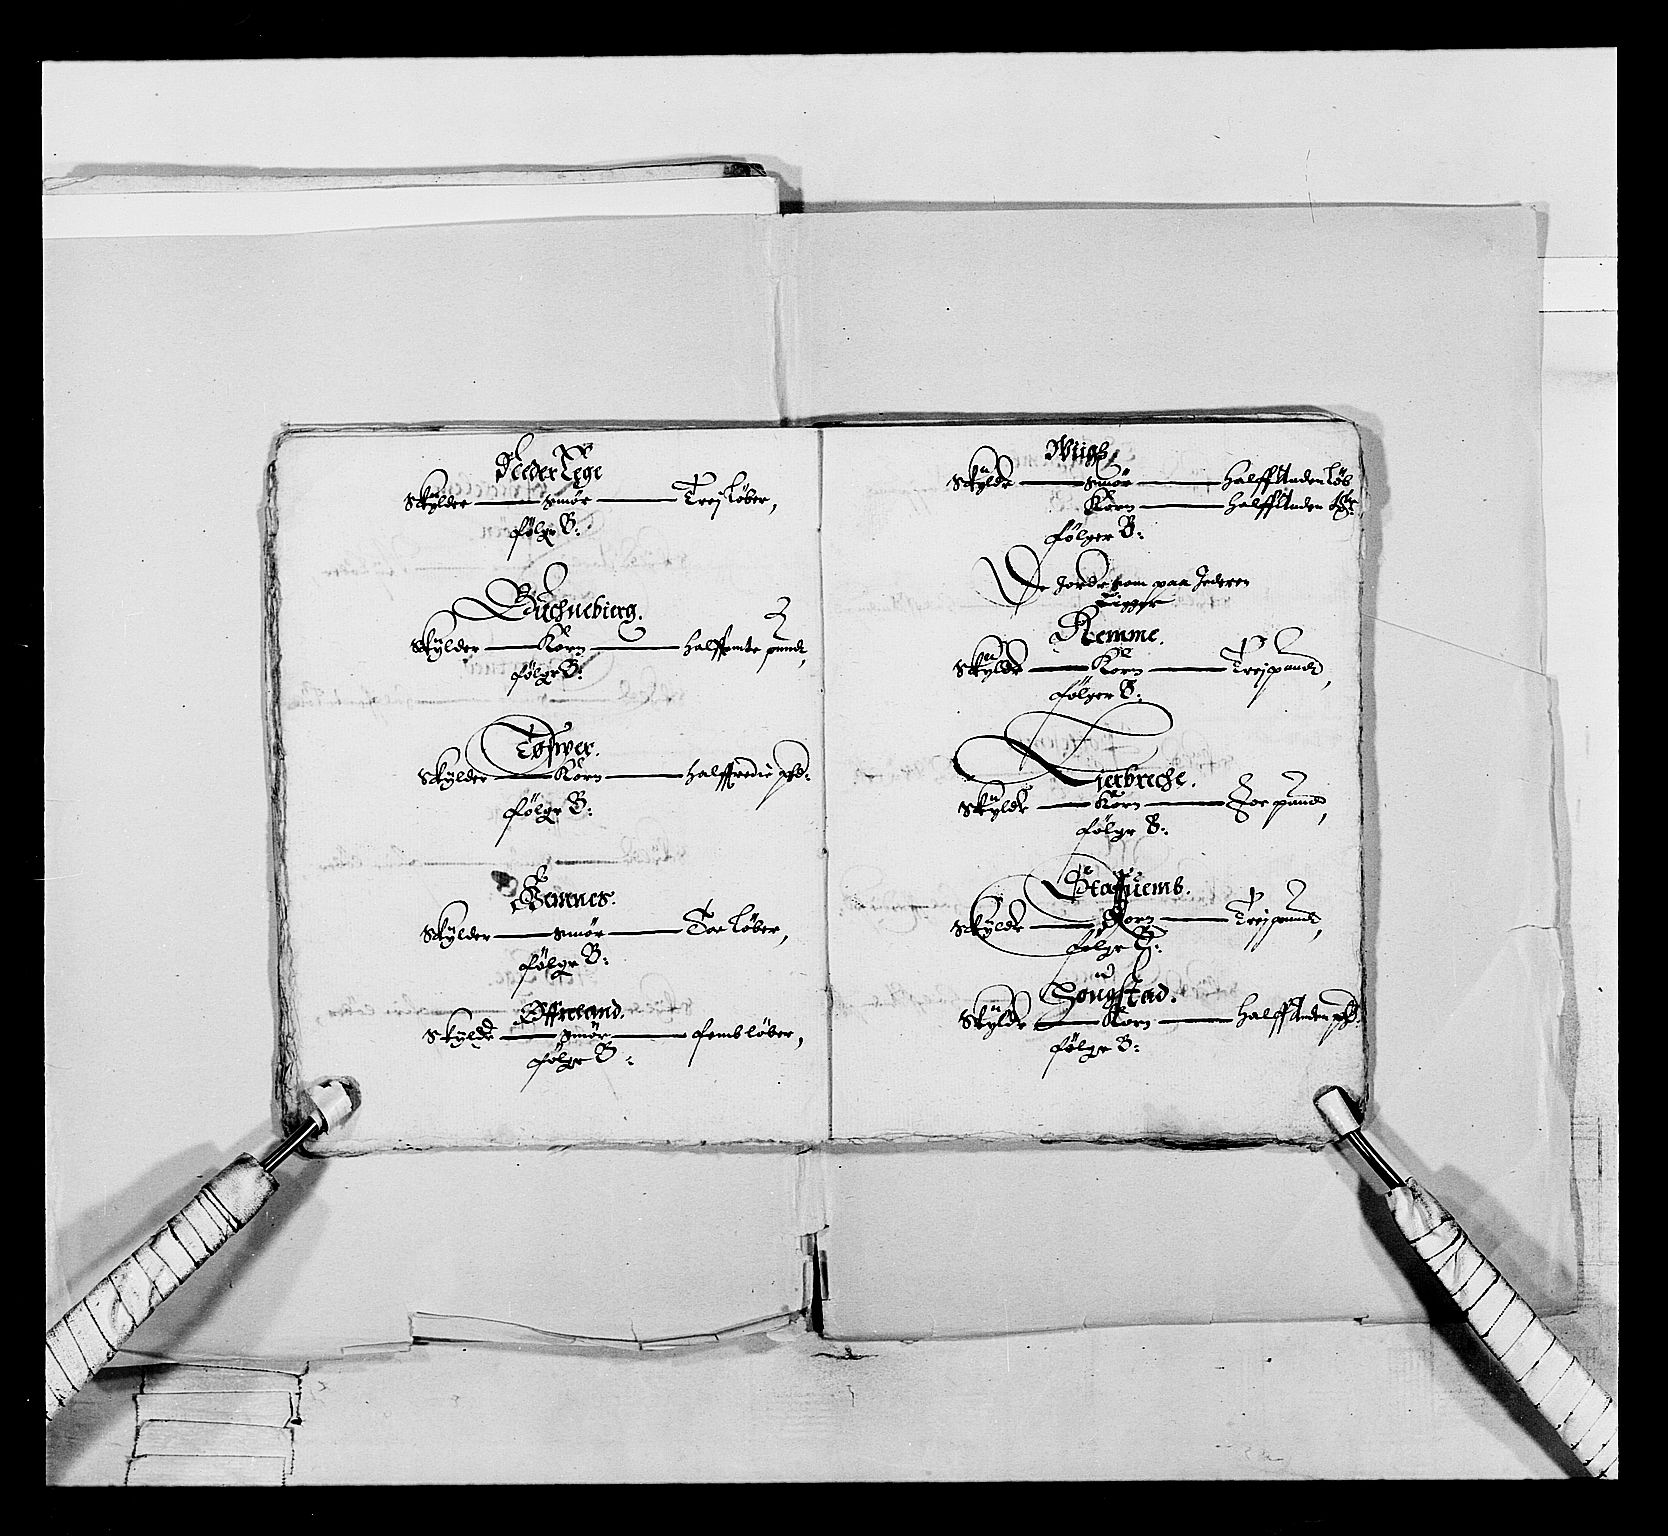 Neder Ege
Skylder — Smör — Trej Løber,
følgr B:
Buchnebierg.
Skylder — Korn — halffemte pund,
følgr B:
Tøsner.
Skylder — Korn — halffredie pd:
følgr B:
Gemnes.
Skylder — Smör — Toe Løber,
følgr B:
Øffreland.
Skyldr — Smör — femb løber,
følgr B:
Wiigh,
Skyldr — Smör — halff Anden Løb
Korn — halff Anden
følger B:
De Jordr som paa Jederen
Ligger
Remme.
Skyldr — Korn — Trej pund,
følger B:
Lierbreche.
Skyldr — Korn — Toe pund,
følgr B:
Skyldr — Korn — Trej pund,
følgr B:
Hougstad.
Skyldr — Korn — halff Anden pd:
følgr B: